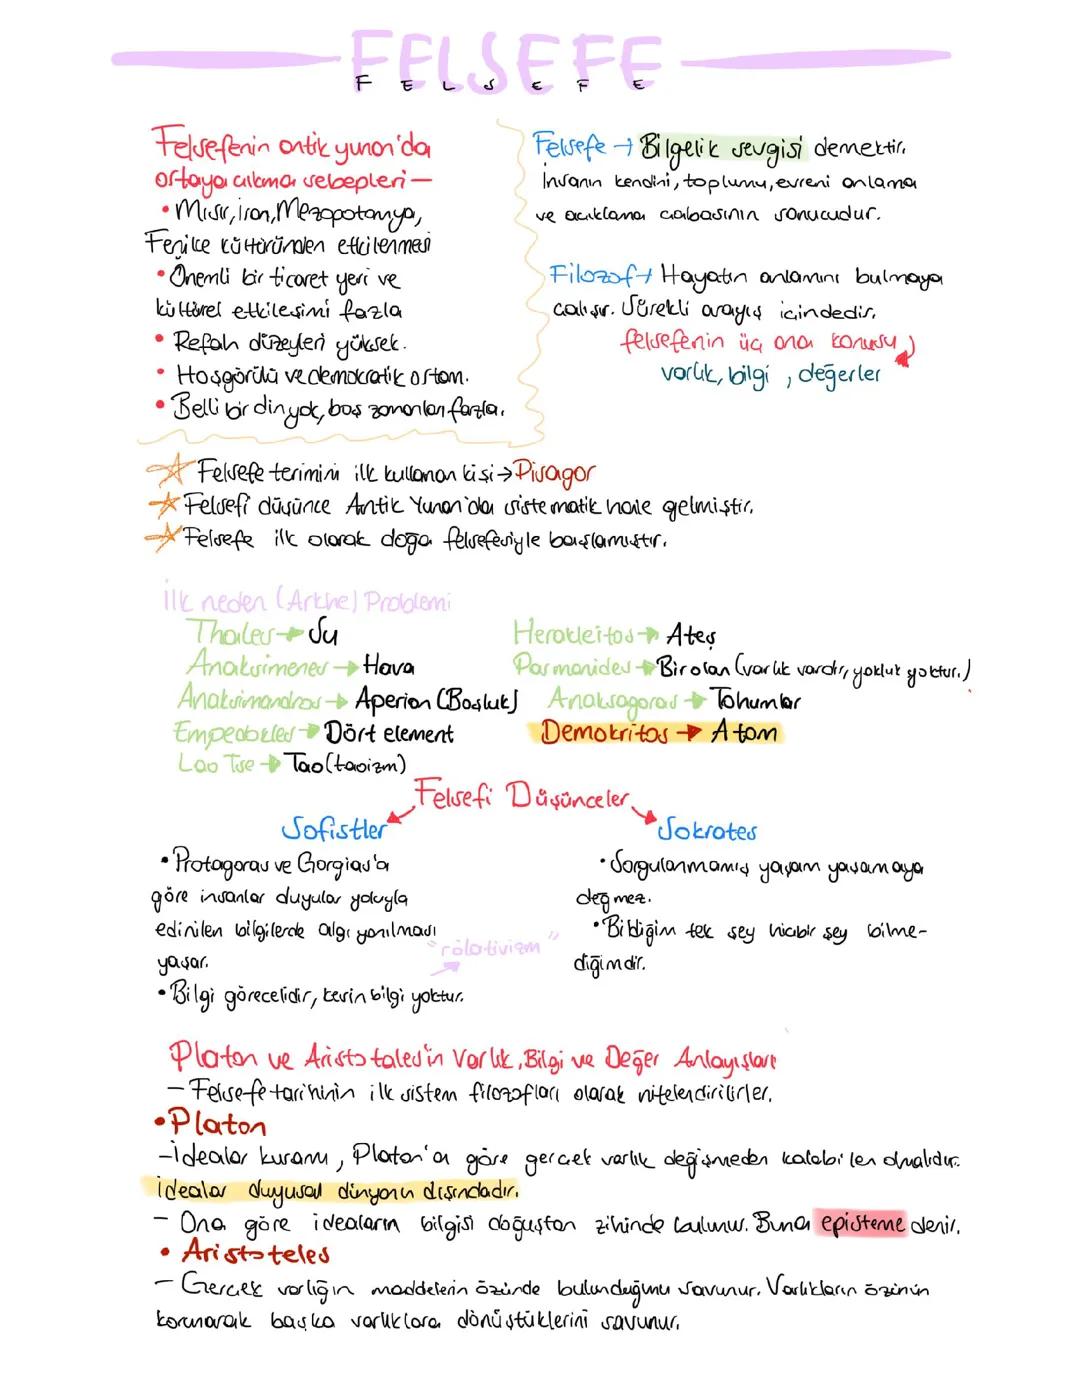 FELSEFE
FELSEFE
Felsefenin antik yunan'da
ortaya çıkma sebepleri—
• Mısır, İran, Mezopotamya,
Fenike kültüründen etkilenmesi
• Önemli bir ticaret yeri ve
kültürel etkileşimi fazla
• Refah düzeyleri yüksek.
• Hoşgörülü ve demokratik ortam.
• Belli bir din yok, boş zamanları fazla.
Felsefe → Bilgelik sevgisi demektir.
İnsanın kendini, toplumu, evreni anlama
ve açıklama çabasının sonucudur.
Filozof → Hayatın anlamını bulmaya
çalışır. Sürekli arayış içindedir.
felsefenin üç ana konusu
varlık, bilgi, değerler
Felsefe terimini ilk kullanan kişi → Pisagor
Felsefi düşünce Antik Yunan'da sistematik hale gelmiştir.
Felsefe ilk olarak doğa felsefesiyle başlamıştır.
İlk neden (Arkhe) Problemi
Thales → Su
Anaksimenes → Hava
Anaksimandros → Aperion (Boşluk)
Empedokles → Dört element
Lao Tse → Tao (taoizm)
Herakleitos → Ateş
Parmanides → Bir olan (varlık vardır, yokluk yoktur.)
Anaksagoras → Tohumlar
Demokritos → Atom
Felsefi Düşünceler
Sofistler
• Protagoras ve Gorgias'a
göre insanlar duyular yoluyla
edinilen bilgilerde algı yanılması
yaşar.
"rölativizm"
• Bilgi görecelidir, kesin bilgi yoktur.
Sokrates
• Sorgulanmamış yaşam yaşamaya
değmez.
• Bildiğim tek şey hiçbir şey bilme-
diğimdir.
Platon ve Aristotales'in Varlık, Bilgi ve Değer Anlayışları
– Felsefe tarihinin ilk sistem filozofları olarak nitelendirilirler.
• Platon
– İdealar kuramı, Platon'a göre gerçek varlık değişmeden kalabilen olmalıdır.
İdealar duyusal dünyanın dışındadır.
– Ona göre ideaların bilgisi doğuştan zihinde bulunur. Buna episteme denir.
• Aristoteles
– Gerçek varlığın maddelerin özünde bulunduğunu savunur. Varlıkların özünün
korunarak başka varlıklara dönüştüklerini savunur.